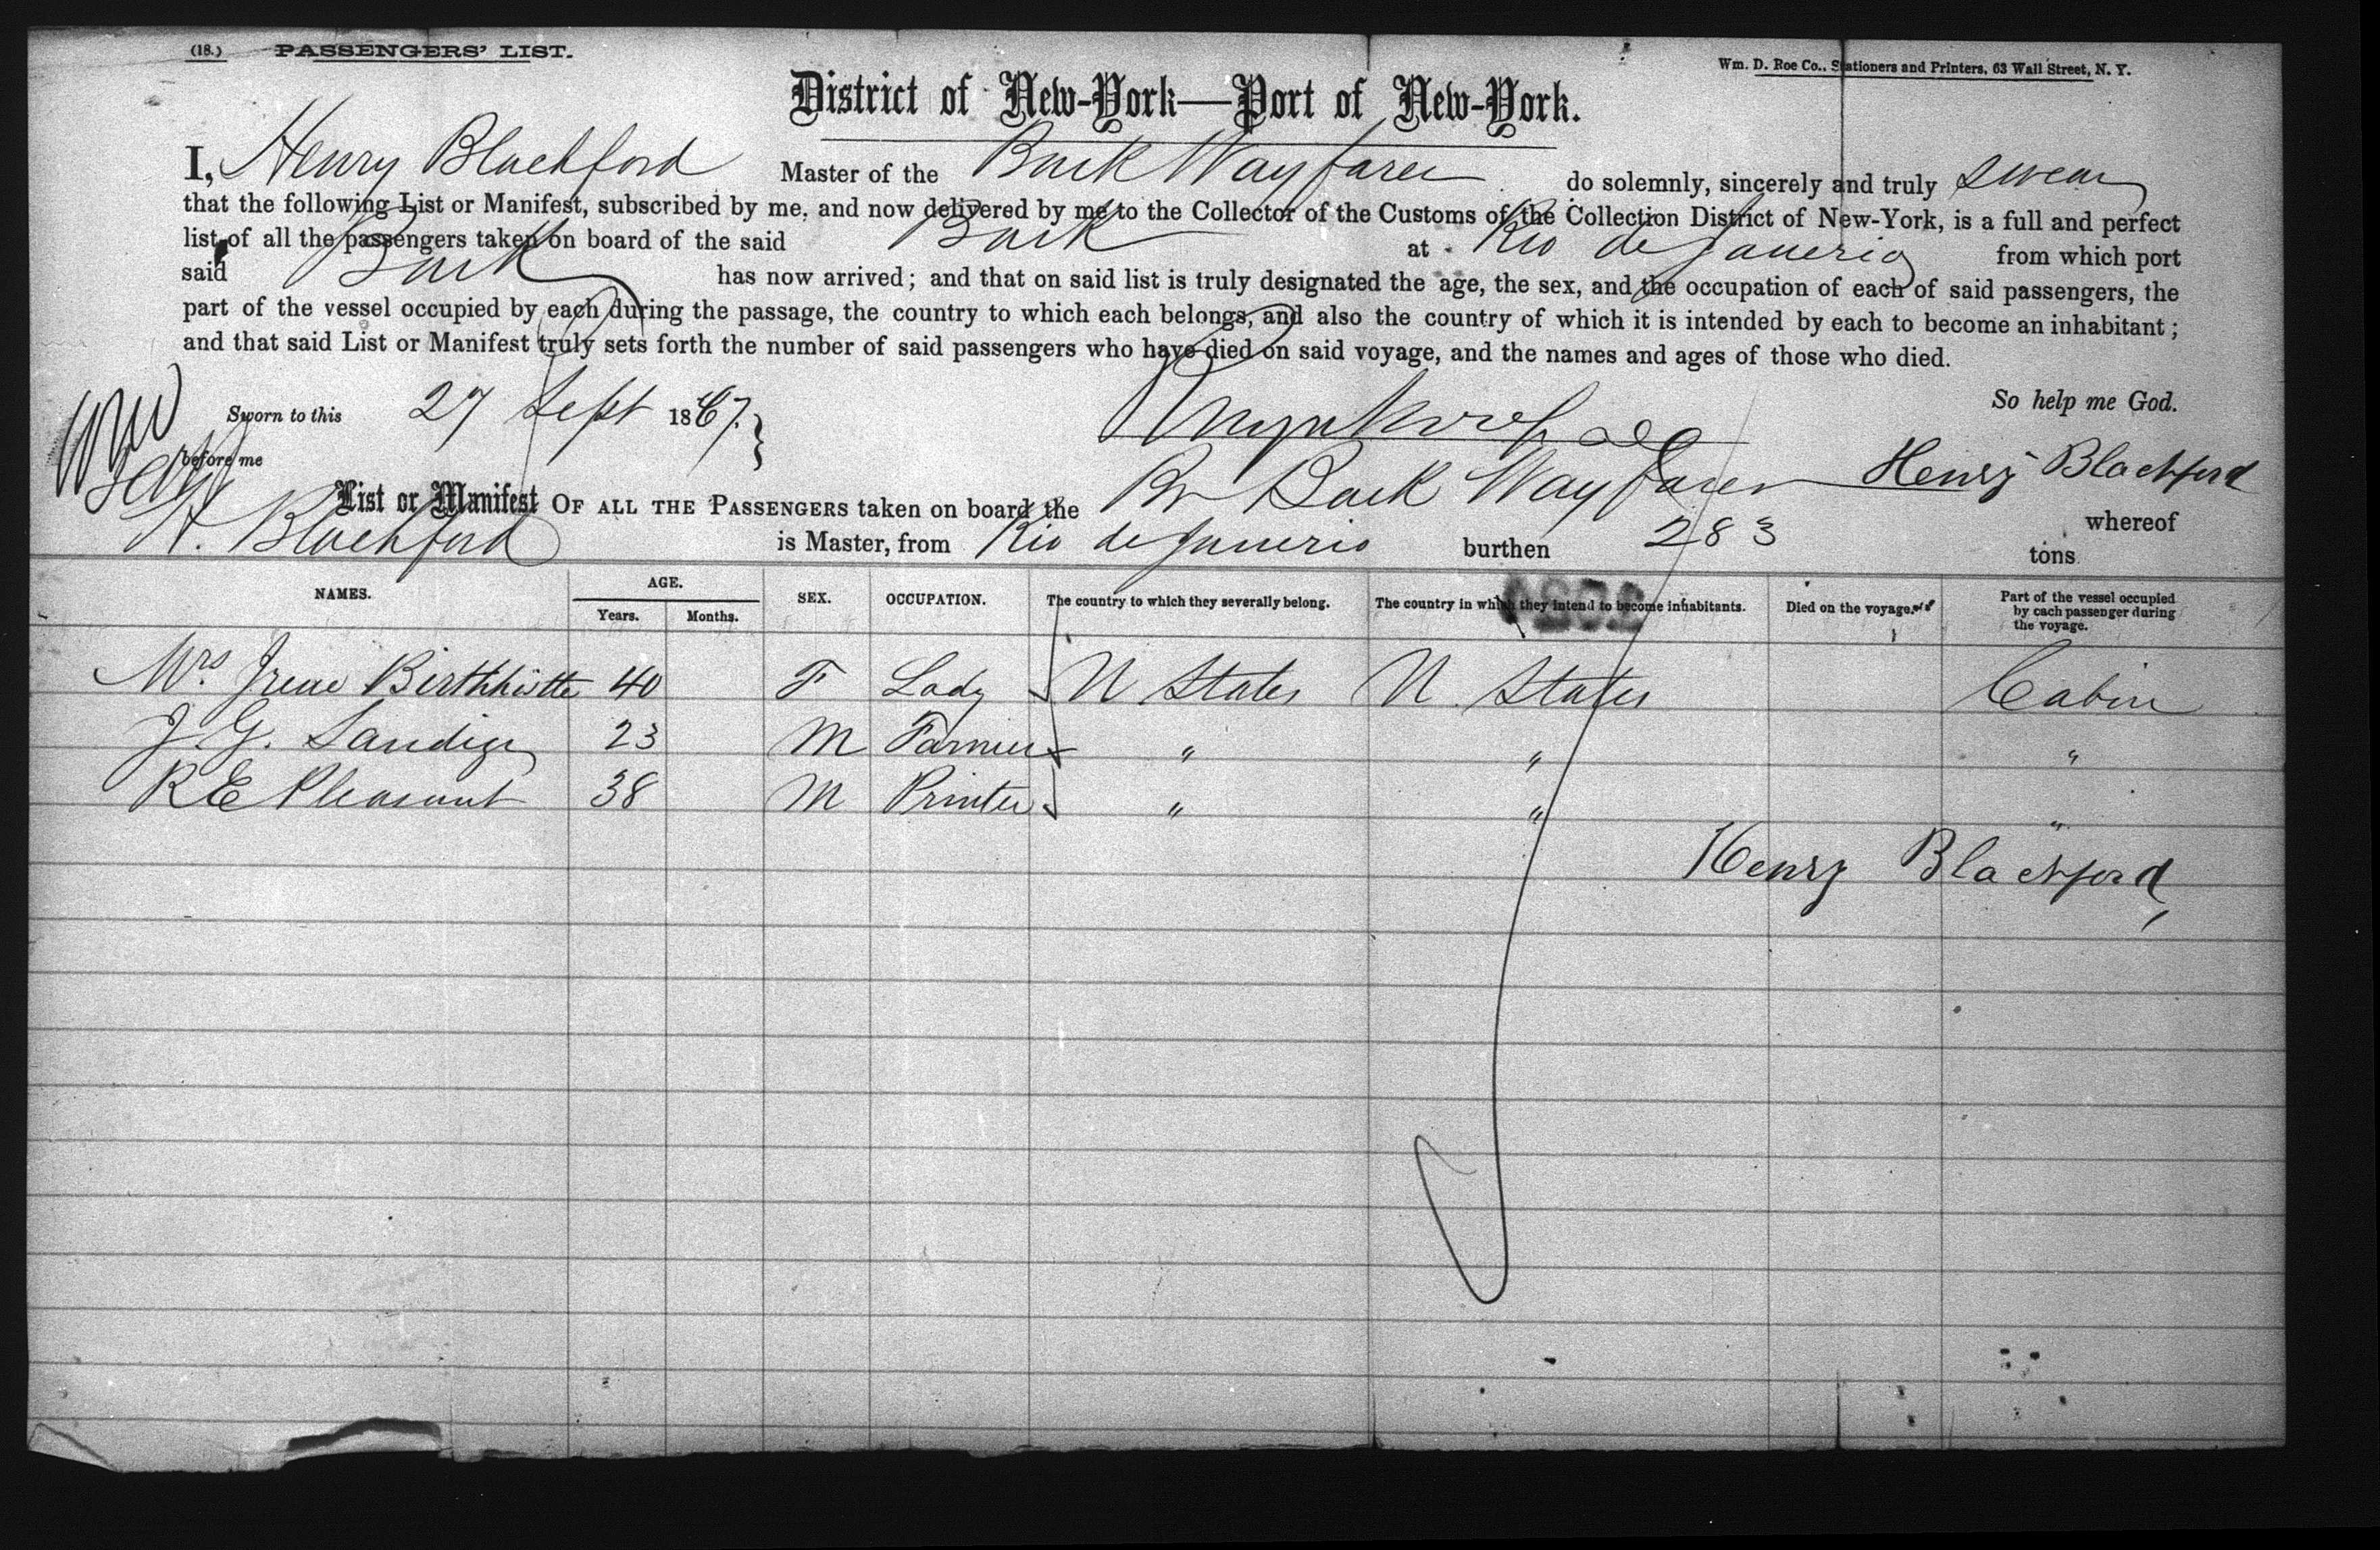 (18.) PASSENGERS' LIST.
Wm. D. Roe Co., Stationers and Printers, 63 Wall Street, N. Y.
District of New-York—Port of New-York.
I, Henry Blachford Master of the Bark Wayfarer do solemnly, sincerely and truly swear
that the following List or Manifest, subscribed by me, and now delivered by me to the Collector of the Customs of the Collection District of New-York, is a full and perfect
list of all the passengers taken on board of the said Bark at Rio de Janerio from which port
said Bark has now arrived; and that on said list is truly designated the age, the sex, and the occupation of each of said passengers, the
part of the vessel occupied by each during the passage, the country to which each belongs, and also the country of which it is intended by each to become an inhabitant;
and that said List or Manifest truly sets forth the number of said passengers who have died on said voyage, and the names and ages of those who died.
So help me God.
Sworn to this 27 Sept 1867.
before me
Henry Blachford
List or Manifest OF ALL THE PASSENGERS taken on board the Br Bark Wayfarer whereof
H. Blachford is Master, from Rio de Janerio burthen 283 tons
NAMES. AGE. Years. Months. SEX. OCCUPATION. The country to which they severally belong. The country in which they intend to become inhabitants. Died on the voyage. Part of the vessel occupied by each passenger during the voyage.
Mrs Irene 40 F Lady U States U. States Cabin
J. G. 23 M Farmer " " "
R E Pleasant 38 M Printer " " "
Henry Blachford